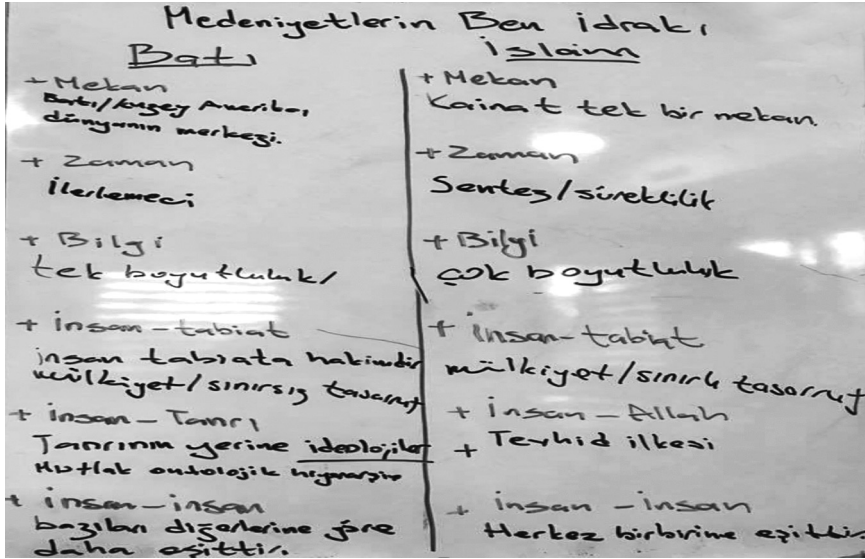 Medeniyetlerin Ben idrakı
Batı
+ Mekan
Batı/kuzey Amerika,
dünyanın merkezi.
+ Zaman
ilerlemeci
+ Bilgi
tek boyutluluk/
+ insan-tabiat
insan tabiata hakimdir
mülkiyet/sınırsız tasarruf
+ insan-Tanrı
Tanrının yerine ideolojiler
Mutlak ontolojik
+ insan-insan
bazıları diğerlerine göre
daha eşittir.
İslam
+ Mekan
Kainat tek bir mekan.
+ Zaman
Sentez/süreklilik
+ Bilgi
çok boyutluluk
+ insan-tabiat
mülkiyet/sınırlı tasarruf
+ insan-Allah
+ Tevhid ilkesi
+ insan-insan
Herkez birbirine eşittir